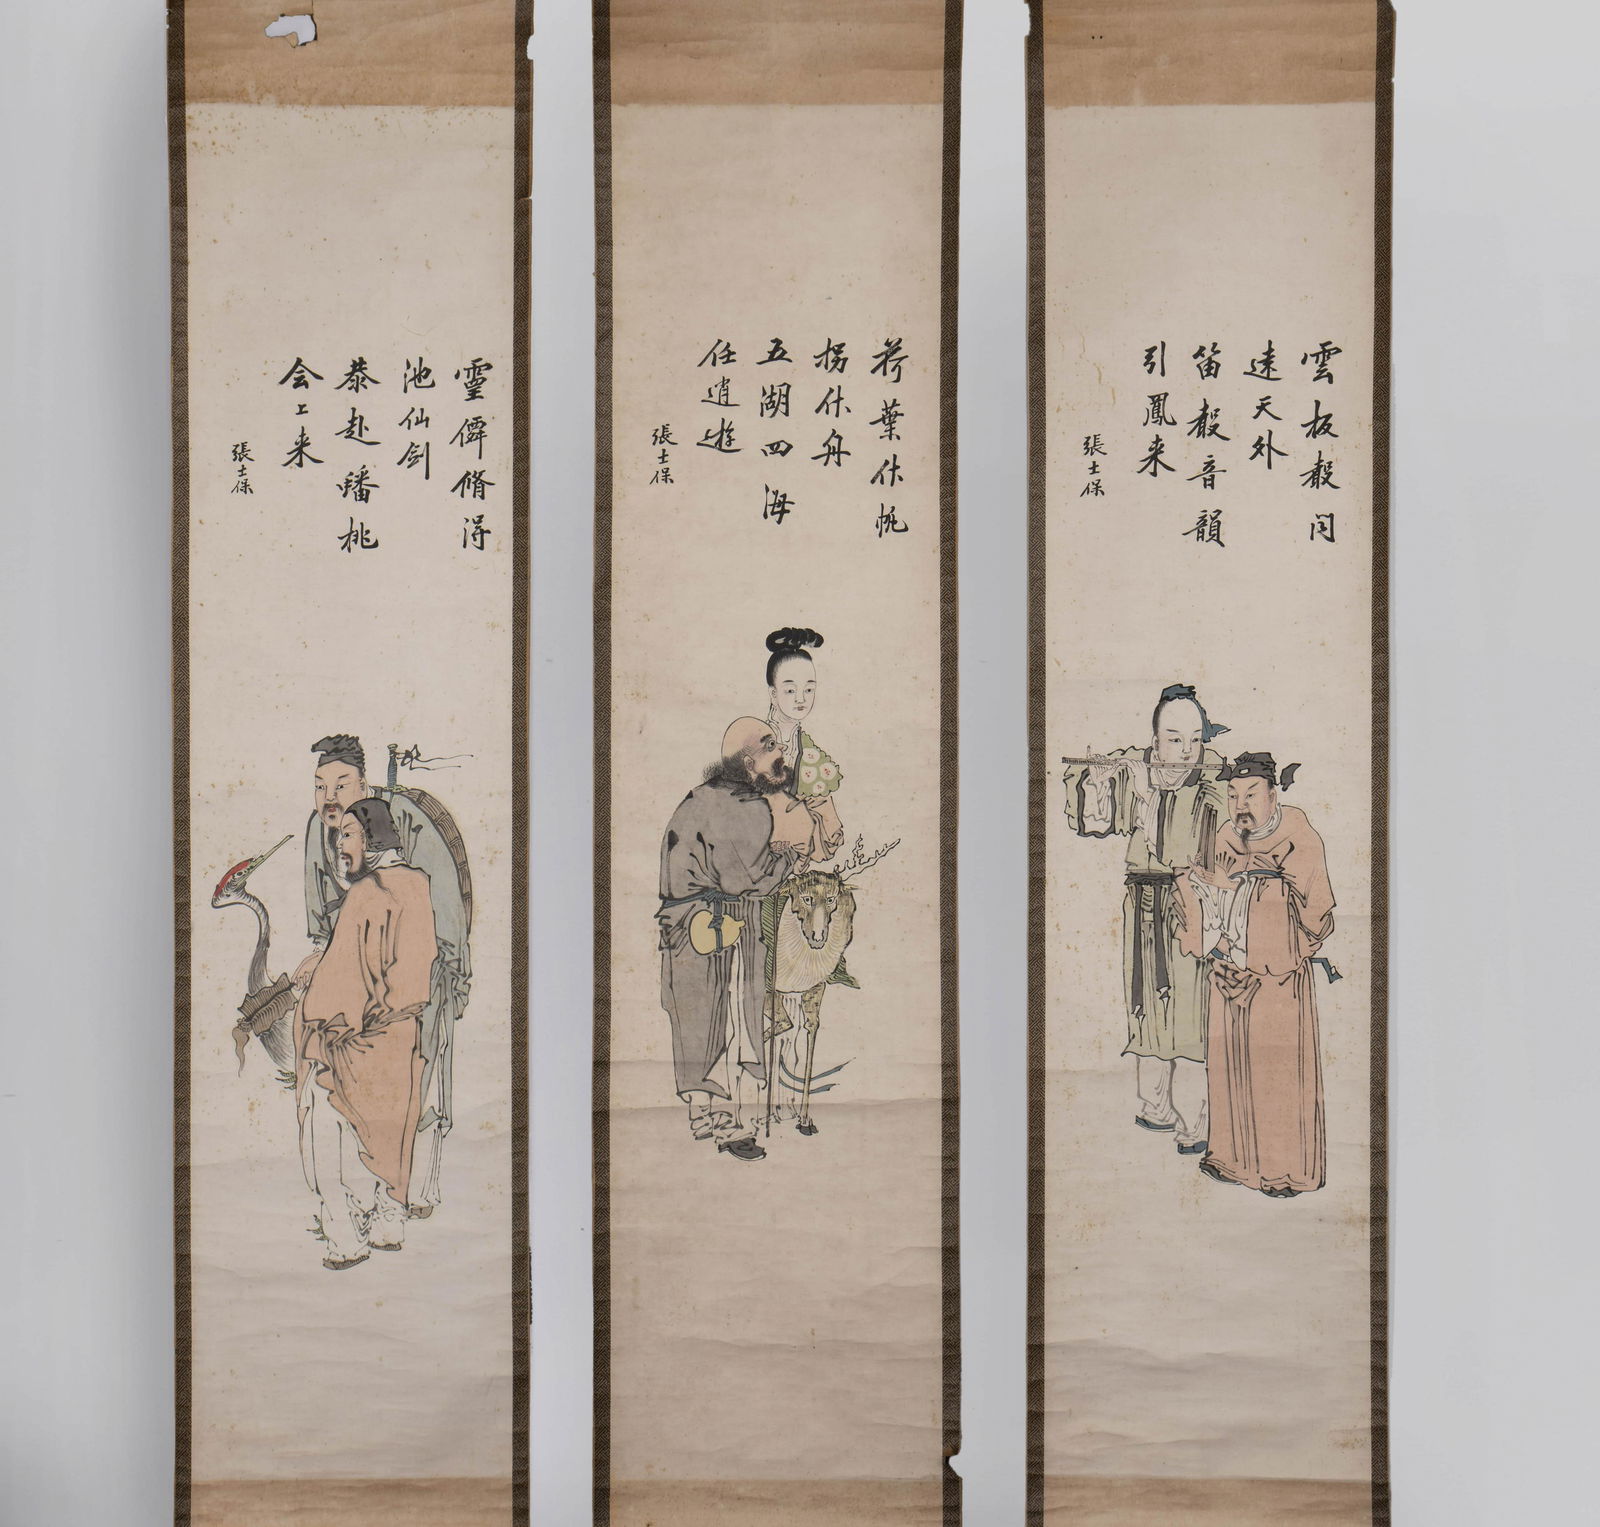 雲板聲聞
遠天外
笛聲音韻
引鳳来
張士保
荷葉作帆
拐作舟
五湖四海
任逍遊
張士保
靈脩得
池仙剑
恭赴蟠桃
会上来
張士保